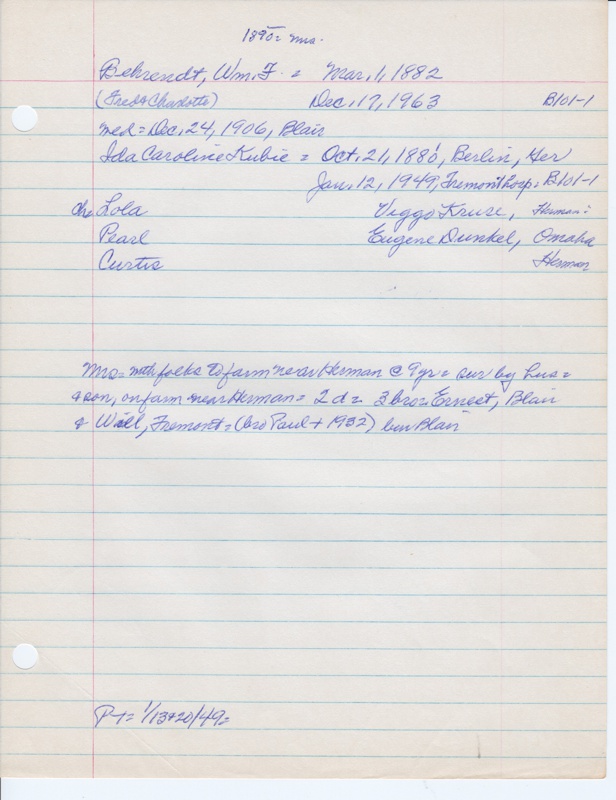 1890= Mrs.
Behrendt, Wm. F. = Mar. 1, 1882
(Fred & Charlotte) Dec. 17, 1963 B101-1
med = Dec. 24, 1906, Blair
Ida Caroline Kubie = Oct. 21, 1880, Berlin, Ger
Jan. 12, 1949, Fremont Hosp. B101-1
ch= Lola Viggo Kruse, Herman=
Pearl Eugene Dunkel, Omaha
Curtis Herman
Mrs= with folks to farm near Herman @ 9yr = sur by hus =
& son, on farm near Herman = 2d = 3 bro = Ernest, Blair
& Will, Fremont = (bro Paul + 1932) bur Blair
P-T= 1/13&20/49=